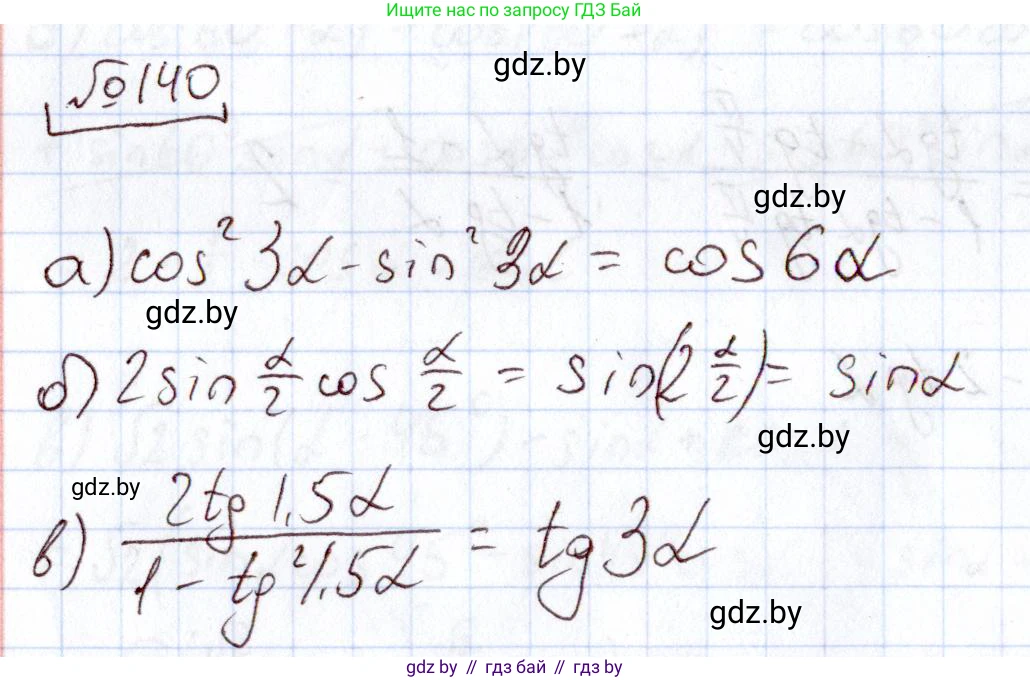 Ищите нас по запросу ГДЗ Бай
gdz.by
№140
gdz.by
а) cos²3α - sin²3α = cos6α
gdz.by
б) 2sin α/2 cos α/2 = sin(2 α/2) = sinα
gdz.by
gdz.by
в) 2tg1,5α / 1 - tg²1,5α = tg3α
gdz.by
gdz.by // гдз бай // гдз by